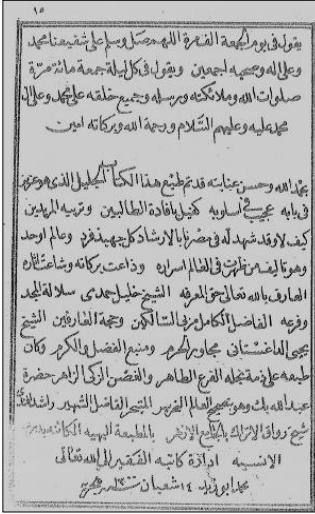 ١٥
يقول في يوم الجمعة الف مرة اللهم صل وسلم على شفيعنا محمد
وعلى اله وصحبه اجمعين ويقول في كل ليلة جمعة مائة مرة
صلوات الله وملائكته ورسله وجميع خلقه على محمد وعلى ال
محمد عليه وعليهم السلام ورحمة الله وبركاته امين
بحمد الله وحسن عنايته قد تم طبع هذا الكتاب الجليل الذي هو عزيز
في بابه عجيب في اسلوبه كفيل بافادة الطالبين وتربيه المريدين
كيف لا وقد شهد له في عصرنا بالارشاد كل جهبذ فرد وعالم اوحد
وهو تاليف من ظهرت في العالم اسراره وذاعت بركاته وشاعت اثاره
العارف بالله تعالى حق المعرفه الشيخ خليل حمدى سلالة المجد
وفرعه الفاضل الكامل مربى السالكين وحجة العارفين الشيخ
يحيى الداغستانى مجاور الحرم ومنبع الفضل والكرم وكان
طبعه على ذمة نجله الفرع الطاهر والغصن الزكى الزاهر حضرة
عبد الله بك وهو بتصحيح العالم النحرير المتبحر الفاضل الشهير راشد افندى
شيخ رواق الاتراك بالجامع الازهر بالمطبعة البهيه الكائنه
الانسيه ادارة كاتبه الفقير الى الله تعالى
محمد ابو زيد ١٤ شعبان سنة هجريه